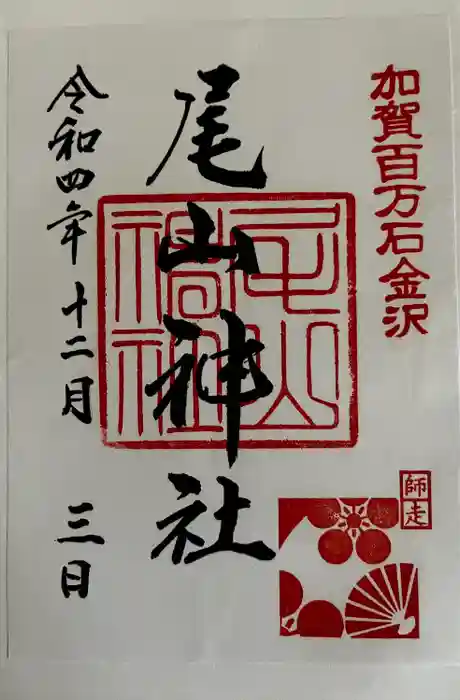 加賀百万石金沢
尾山神社
令和四年十二月三日
師走